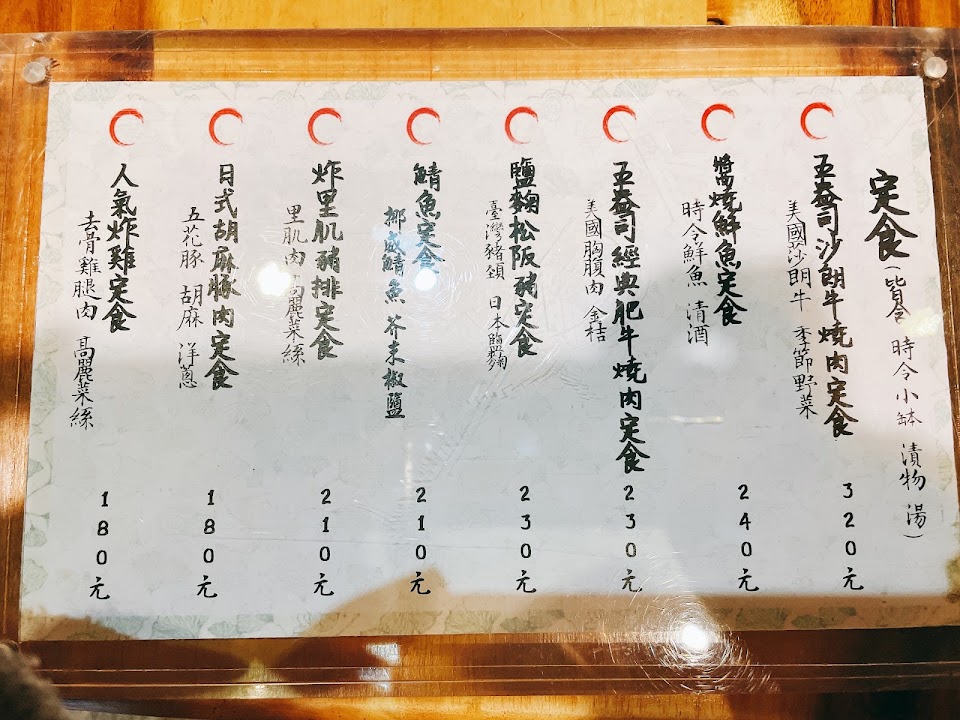 定食(皆含 時令小缽 漬物 湯)
五盎司沙朗牛燒肉定食 320元
美國莎朗牛 季節野菜
醬燒鮮魚定食 240元
時令鮮魚 清酒
五盎司經典肥牛燒肉定食 230元
美國胸腹肉 金桔
鹽麴松阪豬定食 230元
臺灣豬頰 日本鹽麴
鯖魚定食 210元
挪威鯖魚 芥末椒鹽
炸里肌豬排定食 210元
里肌肉 高麗菜絲
日式胡麻豚肉定食 180元
五花豚 胡麻 洋蔥
人氣炸雞定食 180元
去骨雞腿肉 高麗菜絲